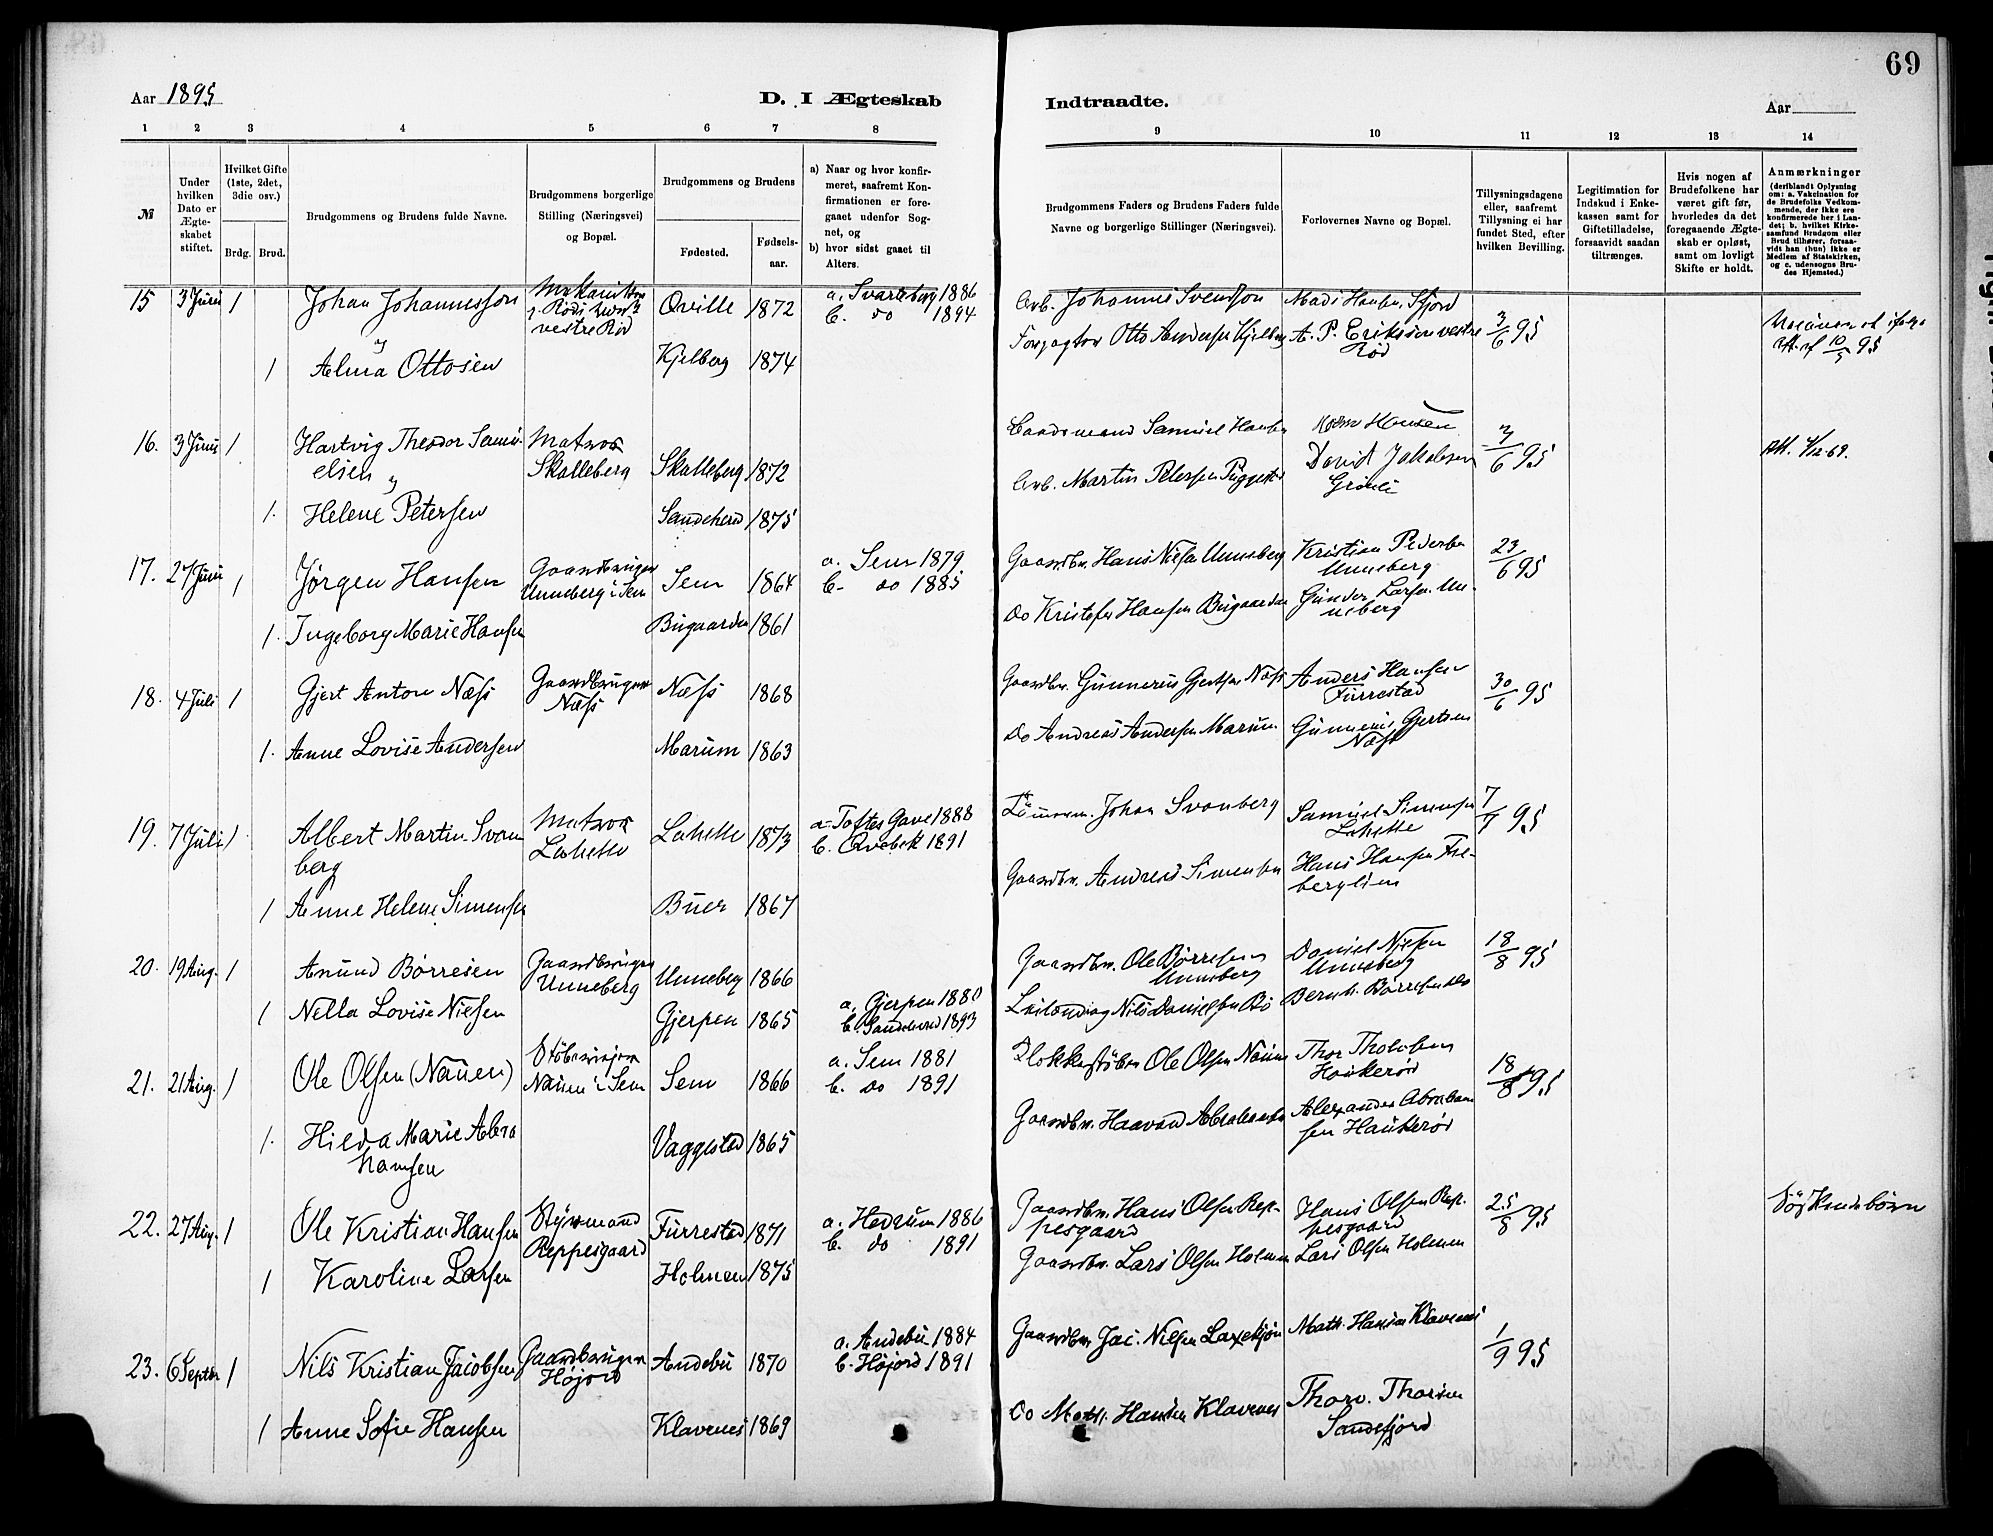 69
Aar 1895
D. I Ægteskab
Indtraadte.
Aar
1 2 3 4 5 6 7 8
9 10 11 12 13 14
№
Under hvilken Dato er Ægteskabet stiftet.
Hvilket Gifte (1ste, 2det, 3die osv.)
Brdg. Brud.
Brudgommens og Brudens fulde Navne.
Brudgommens borgerlige Stilling (Næringsvei) og Bopæl.
Brudgommens og Brudens
Fødested.
Fødsels-aar.
a) Naar og hvor konfir-
meret, saafremt Kon-
firmationen er fore-
gaaet udenfor Sog-
net, og
b) hvor sidst gaaet til
Alters.
Brudgommens Faders og Brudens Faders fulde
Navne og borgerlige Stillinger (Næringsvei).
Forlovernes Navne og Bopæl.
Tillysningsdagene
eller, saafremt
Tillysning ei har
fundet Sted, efter
hvilken Bevilling.
Legitimation for
Indskud i Enke-
kassen samt for
Giftetilladelse,
forsaavidt saadan
tiltrænges.
Hvis nogen af
Brudefolkene har
været gift før,
hvorledes da det
foregaaende Ægte-
skab er opløst,
samt om lovligt
Skifte er holdt.
Anmærkninger
(deriblandt Oplysning
om: a. Vakcination for
de Brudefolks Vedkom-
mende, der ikke ere
konfirmerede her i Lan-
det; b. hvilket Kirke-
samfund Brudgom eller
Brud tilhører, forsaa-
vidt han (hun) ikke er
Medlem af Statskirken,
og c. udensogns Bru-
des Hjemsted.)
15 3 Juni 1 Johan Johannesson
vestre Rød
Qville 1872 a. Svarteborg 1886
b. do 1894
Arb. Johannes Svendson
Mads Hansen, Sfjord
3/6 95
og
1 Alma Ottosen Kjelberg 1874
Forpagter Otto Andersen Kjelberg
A. P. Eriksson vestre
Rød
16. 3 Juni 1 Hartvig Theodor Samu-
elsen og
Matros
Skalleberg Skalleberg 1872
Baadsmand Samuel Hansen
3/6 95
1. Helene Petersen Sandeherd 1875
Arb. Martin Petersen
David Jakobsen
17. 27 Juni 1 Jørgen Hansen
Gaardbruger
Unneberg i Sem Sem 1864
a. Sem 1879
b. do 1885
Gaardbr. Hans Nielsen Unneberg
Kristian Pedersen
Unneberg
23/6 95
1. Ingeborg Marie Hansen Bugaarden 1861
Do Kristofer Hansen Bugaarden
Gunder Larsen Un-
neberg
18. 4 Juli 1 Gjert Anton Næss
Gaardbruger
Næss Næss 1868
Gaardbr. Gunnerius Gjertsen Næss
Anders Hansen
Furrestad
30/6 95
1. Anne Lovise Andersen Marum 1863
Do Andreas Andersen Marum
Gunnerius Gjertsen
Næss
19. 7 Juli 1 Albert Martin Svan
berg
Matros
Lahelle Lahelle 1873
a. Toftes Gave 1888
b. Qvebek 1891
Tømmerm. Johan Svanberg
Samuel Simensen
Lahelle
7/7 95
1 Anne Helene Simensen Buer 1867
Gaardbr. Andreas Simensen
Hans Hansen Fre-
berglien
20. 19 Aug. 1 Anund Børresen
Gaardbruger
Unneberg Unneberg 1866
Gaardbr. Ole Børresen
Unneberg
Daniel Nielsen
Unneberg
18/8 95
1 Nella Lovise Nielsen Gjerpen 1865
a. Gjerpen 1880
b. Sandeherd 1893
Leilænding Nils Danielsen Bø
Bernh. Børresen do
21. 21 Aug. 1 Ole Olsen (Nauen)
Nauen i Sem Sem 1866
a. Sem 1881
b. do 1891
Klokkestøber Ole Olsen Nauen
Thor Tholvsen
Haukerød
18/8 95
1. Hilda Marie Abra
hamsen Vaggestad 1865
Gaardbr. Haavard Abrahamsen
Alexander Abraham
sen Haukerød
22. 27 Aug. 1 Ole Kristian Hansen
Styrmand
Reppesgaard Furrestad 1871
a. Hedrum 1886
b. do 1891
Gaardbr. Hans Olsen Rep-
pesgaard
Hans Olsen Rep-
pesgaard
25/8 95
Søskendebørn
1 Karoline Larsen Holmen 1875
Gaardbr. Lars Olsen Holmen
Lars Olsen Holmen
23. 6 Septbr 1 Nils Kristian Jacobsen
Gaardbruger
Højord Andebu 1870
a. Andebu 1884
b. Højord 1891
Gaardbr. Jac. Nielsen
Math. Hansen Klavenes
1/9 95
1 Anne Sofie Hansen Klavenes 1869
Do Math. Hansen Klavenes
Thorv. Thorsen
Sandefjord